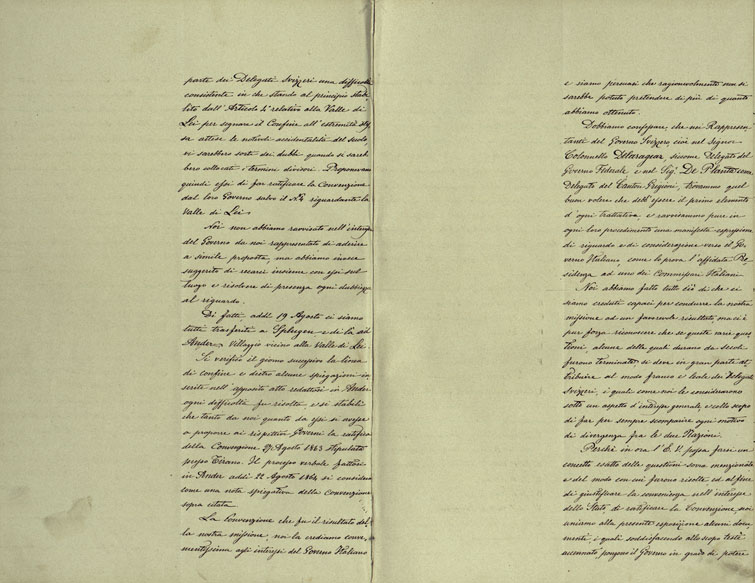 parte dei Delegati Svizzeri una difficoltà
consistente in che stando al principio stabi-
lito dall'Articolo 4° relativo alla Valle di
Lei per segnare il Confine all'estremità
sa attese le notevoli accidentalità del suolo,
vi sarebbero sorti dei dubbi quando si sareb-
bero collocati i termini divisori. Proponevano
quindi essi di far ratificare la Convenzione
dal loro Governo salvo il N.4 riguardante la
Valle di Lei.
Noi non abbiamo ravvisato nell'interesse
del Governo da noi rappresentato di aderire
a simile proposta, ma abbiamo invece
suggerito di recarsi insieme con essi sul
luogo e risolvere di presenza ogni dubbiezza
al riguardo.
Di fatti, addì 19 Agosto ci siamo
tutti trasferiti a Splugen e di là ad
Ander, Villaggio vicino alla Valle di Lei.
Si verificò il giorno successivo la linea
di confine e dietro alcune spiegazioni in-
serite nell'apposito atto redattosi in Ander
ogni difficoltà fu risolta e si stabilì
che tanto da noi quanto da essi si avesse
a proporre ai rispettivi Governi la ratifica
della Convenzione 27 Agosto 1863 stipulata
presso Tirano. Il processo verbale fattosi
in Ander addì 22 Agosto 1864 si considera
come una nota spiegativa della Convenzione
sopra citata.
La Convenzione che fu il risultato del-
la nostra missione, noi la crediamo conve-
nientissima agli interessi del Governo Italiano
e siamo persuasi che ragionevolmente non si
sarebbe potuto pretendere di più di quanto
abbiamo ottenuto.
Dobbiamo confessare, che nei Rappresen-
tanti del Governo Svizzero cioè nel Signor
Colonnello Delarageaz, siccome Delegato del
Governo Federale e nel Sig. De Planta come
Delegato del Canton Grigioni, trovammo quel
buon volere che dev'essere il primo elemento
d'ogni trattativa, e ravvisammo pure in
ogni loro procedimento una manifesta espressione
di riguardo e di considerazione verso il Go-
verno Italiano, come lo prova l'affidata Re-
sidenza ad uno dei Commissari Italiani
Noi abbiamo fatto tutto ciò di che ci
siamo creduti capaci per condurre la nostra
missione ad un favorevole risultato ma ci è
pur forza riconoscere che se queste varie ques-
tioni, alcune delle quali durano da secoli
furono terminate si deve in gran parte at-
tribuire al modo franco e leale dei Delegati
Svizzeri, i quali come noi le considerarono
sotto un aspetto d'interesse generale e collo scopo
di far per sempre scomparire ogni motivo
di divergenza fra le due Nazioni.
Perché in ora l'E.V. possa farsi un
concetto esatto delle questioni sopra menzionate
e del modo con cui furono risolte ed al fine
di giustificare la convenienza nell'interesse
dello Stato, di ratificare la Convenzione, noi
uniamo alla presente esposizione alcuni docu-
menti, i quali soddisfacendo allo scopo testè
accennato, pongono il Governo in grado di potere